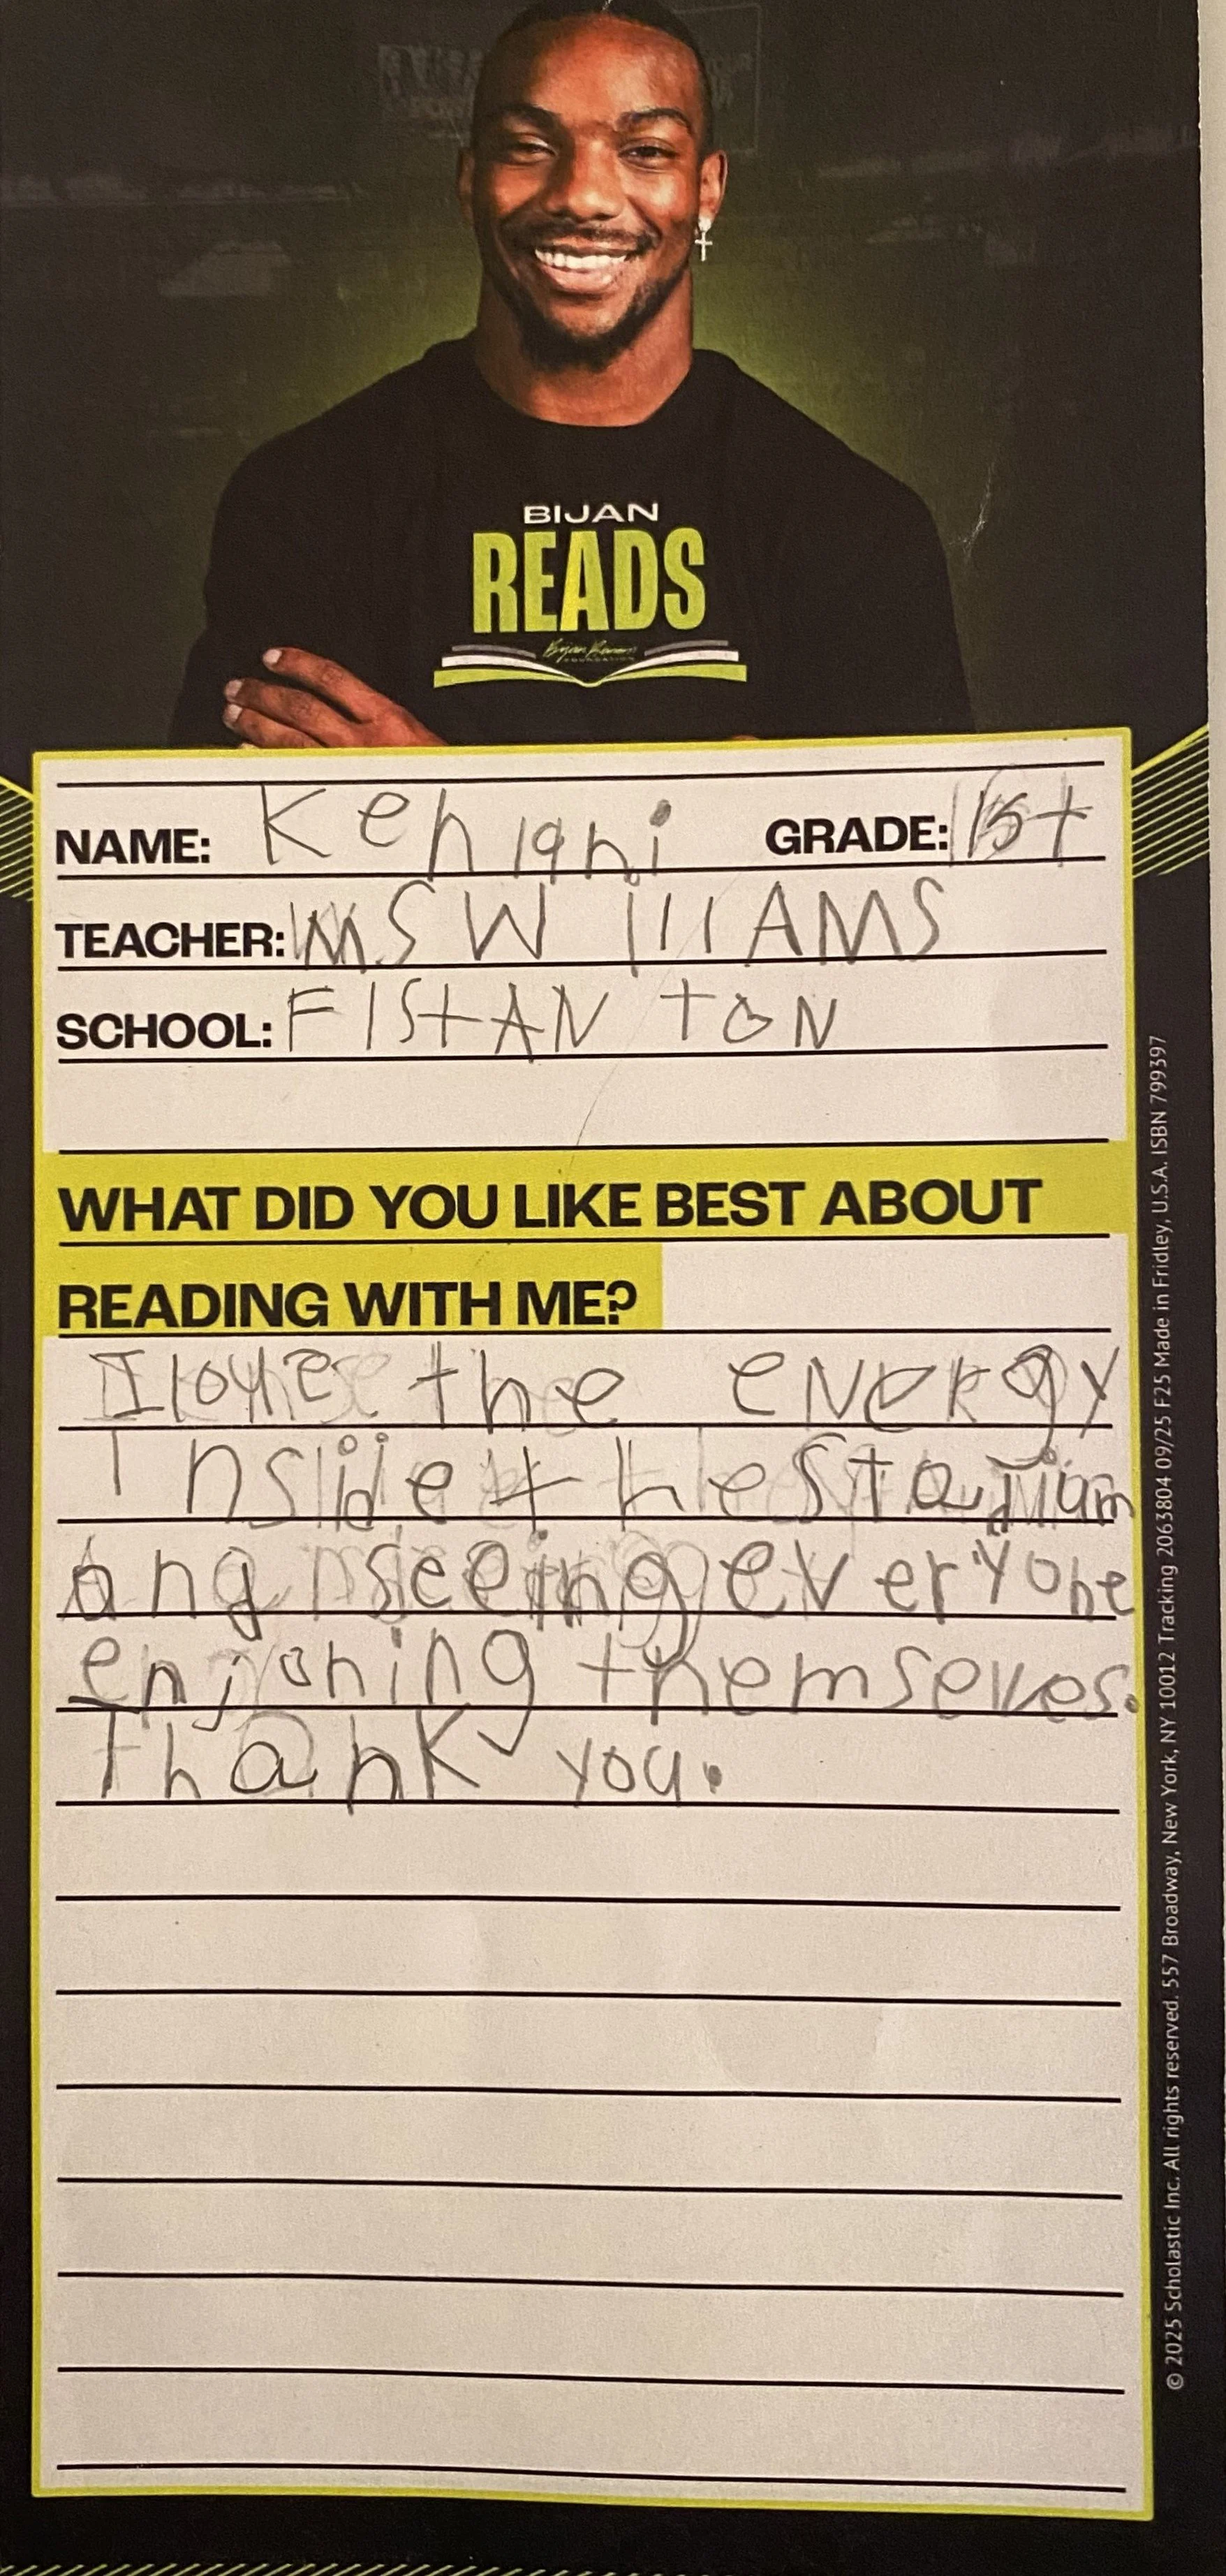 BIJAN
READS
NAME: Kehiani GRADE: 1st
TEACHER: MS WIllIAMS
SCHOOL: FISTAN TON
WHAT DID YOU LIKE BEST ABOUT
READING WITH ME?
I love the eNeRgy
Inside the stadium
ang seeing everyone
enjoning themselves.
Thank you.
© 2025 Scholastic Inc. All rights reserved. 557 Broadway, New York, NY 10012 Tracking 2063804 09/25 F25 Made in Fridley, U.S.A. ISBN 799397